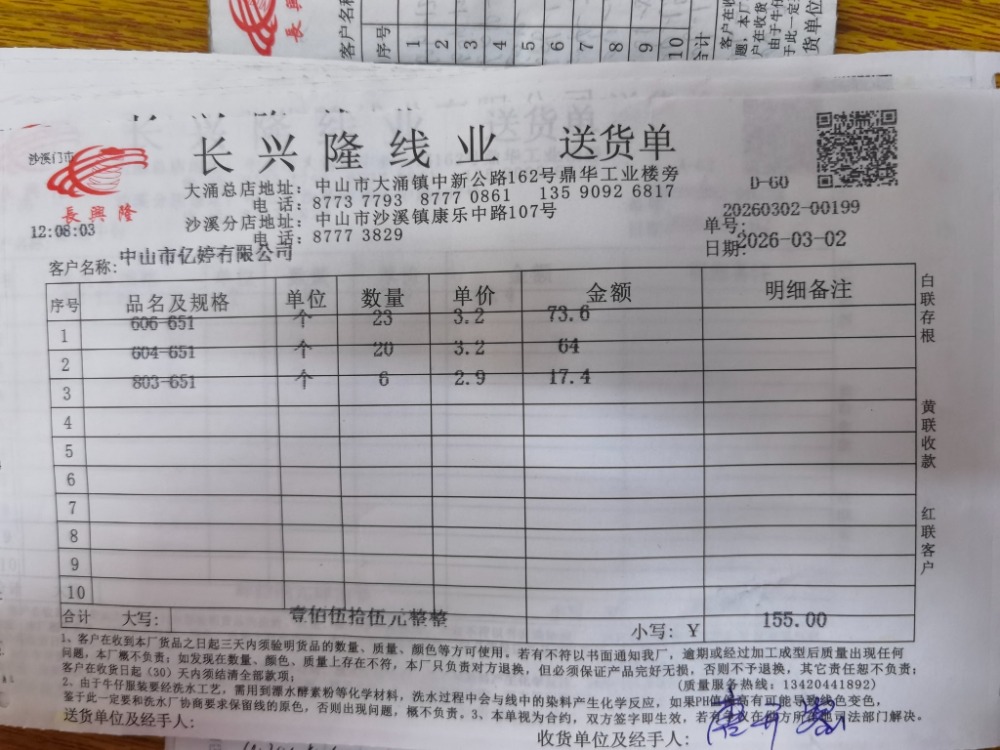 客户名称
序号 1 2 3 4 5 6 7 8 9 10 合计
长兴隆线业 送货单
沙溪门市
長興隆
大涌总店地址：中山市大涌镇中新公路162号鼎华工业楼旁
电话：8773 7793 8777 0861 135 9092 6817
D-60
沙溪分店地址：中山市沙溪镇康乐中路107号
单号：20260302-00199
12:08:03
电话：8777 3829
日期：2026-03-02
客户名称：中山市亿婷有限公司
序号 品名及规格 单位 数量 单价 金额 明细备注
1 606-651 个 23 3.2 73.6
2 604-651 个 20 3.2 64
3 803-651 个 6 2.9 17.4
4
5
6
7
8
9
10
合计 大写：壹佰伍拾伍元整整 小写：¥ 155.00
白联存根
黄联收款
红联客户
1、客户在收到本厂货品之日起三天内须验明货品的数量、质量、颜色等方可使用。若有不符以书面通知我厂，逾期或经过加工成型后质量出现任何
问题，本厂概不负责；如发现在数量、颜色、质量上存在不符，本厂只负责对方退换，但必须保证产品完好无损，否则不予退换，其它责任恕不负责；
客户在收货日起（30）天内须结清全部款项；
(质量服务热线：13420441892)
2、由于牛仔服装要经洗水工艺，需用到漂水酵素粉等化学材料，洗水过程中会与线中的染料产生化学反应，如果PH值偏高有可能导致线色变色，
鉴于此一定要和洗水厂协商要求保留线的原色，否则出现问题，概不负责。3、本单视为合约，双方签字即生效，若有争议在供方所在地司法部门解决。
送货单位及经手人：
收货单位及经手人：